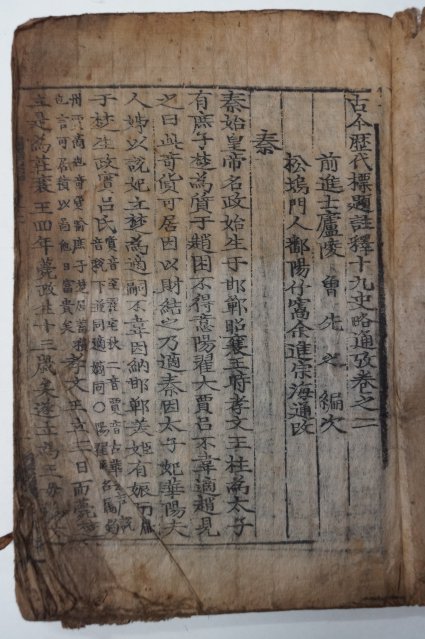 古今歷代標題註釋十九史略通攷卷之二
前進士廬陵曾先之編次
松塢門人鄱陽竹窩余進宗海通攷
秦
秦始皇帝名政始生于邯鄲昭襄王時孝文王柱爲太子
有庶子楚爲質于趙困不得意陽翟大賈呂不韋適趙見
之曰此奇貨可居因以財結之乃適秦因太子妃華陽夫
人姊以說妃立楚爲適嗣不韋因納邯鄲美姬有娠而獻
于楚生政實呂氏
孝文王立三日而薨楚
立是爲莊襄王四年薨政生十三歲矣遂立爲王